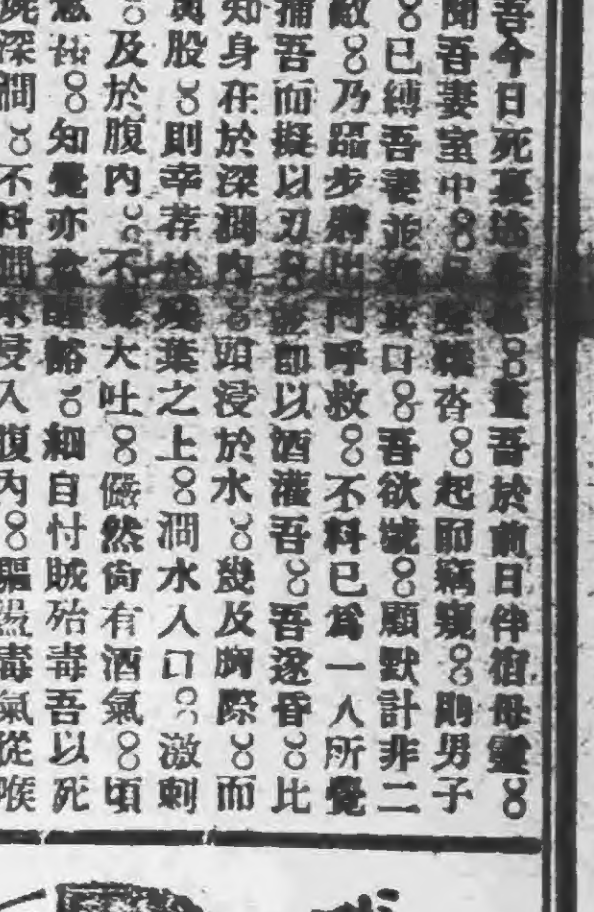 吾今日死裏逃生也。蓋吾於前日伴宿母靈。
聞吾妻室中。足聲雜沓。起而竊窺。則男子
。已縛吾妻並塞其口。吾欲號。顧默計非二
敵。乃躡步將出門呼救。不料已爲一人所覺
捕吾而擬以刃。旋卽以酒灌吾。吾遂昏。比
知身在於深澗內。頭浸於水。幾及胸際。而
與股。則幸荐於葉之上。澗水入口。激刺
。及於腹內。不大吐。儼然尙有酒氣。頃
。知覺亦醒豁。細自忖賊殆毒吾以死
屍深澗。不料澗水浸入腹內。驅盪毒氣從喉